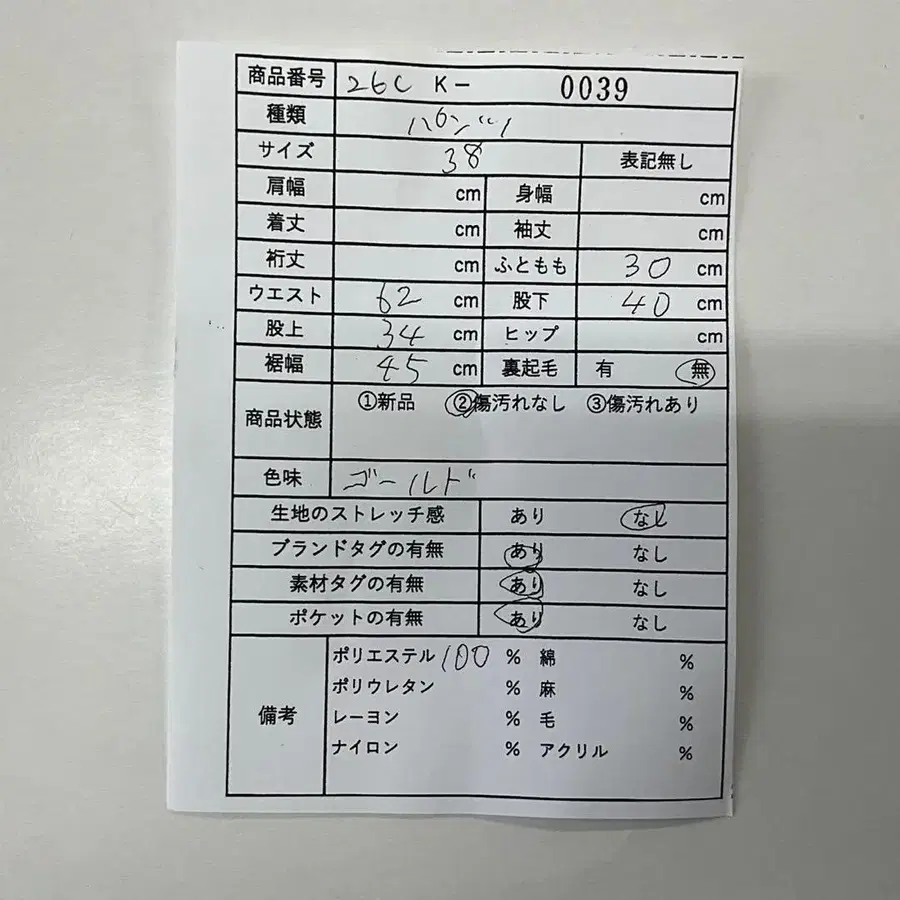 商品番号 26C K- 0039
種類 パンツ
サイズ 38 表記無し
肩幅 cm 身幅 cm
着丈 cm 袖丈 cm
裄丈 cm ふともも 30 cm
ウエスト 62 cm 股下 40 cm
股上 34 cm ヒップ cm
裾幅 45 cm 裏起毛 有 無
商品状態 ①新品 ②傷汚れなし ③傷汚れあり
色味 ゴールド
生地のストレッチ感 あり なし
ブランドタグの有無 あり なし
素材タグの有無 あり なし
ポケットの有無 あり なし
備考
ポリエステル 100 % 綿 %
ポリウレタン % 麻 %
レーヨン % 毛 %
ナイロン % アクリル %